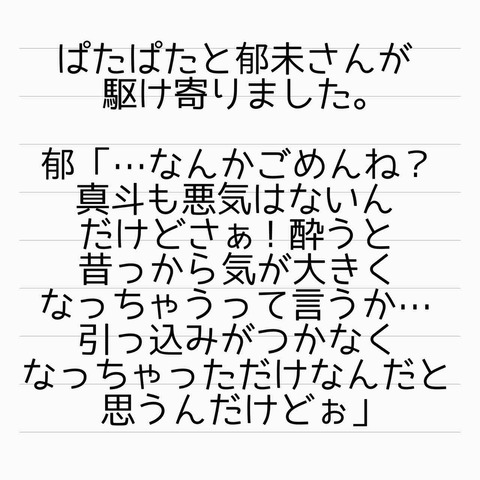 ぱたぱたと郁未さんが
駆け寄りました。
郁「…なんかごめんね？
真斗も悪気はないん
だけどさぁ！酔うと
昔っから気が大きく
なっちゃうって言うか…
引っ込みがつかなく
なっちゃっただけなんだと
思うんだけどぉ」